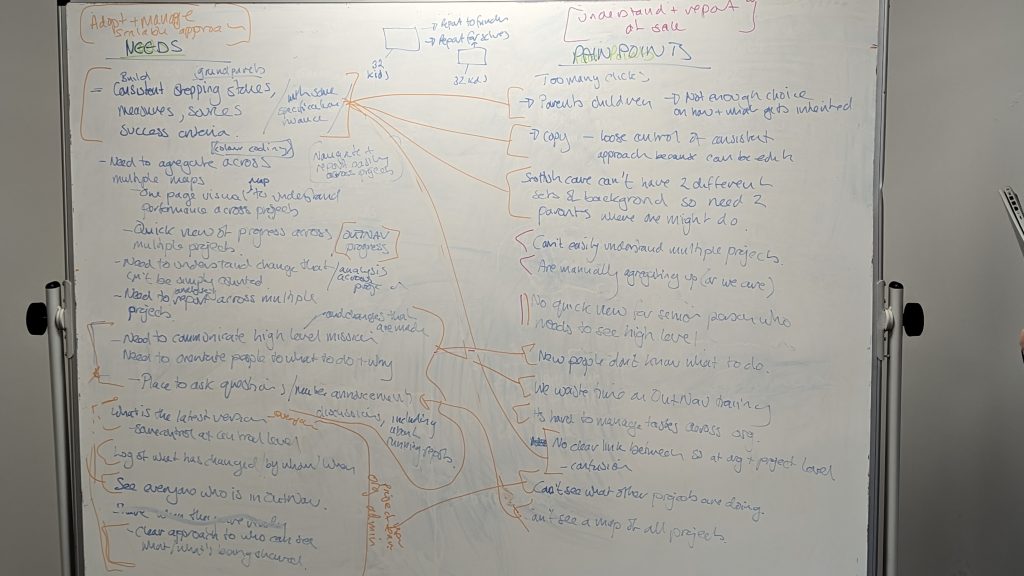 Adopt + manage
scalable approa
NEEDS
Build grandparents
= Consistent stepping stones,
measures, sources
success criteria.
/ with some
specification
nuance
(colour coding)
- Need to agregate across
multiple maps
map
- One page visual to understand
performance across projects
Navigate +
report easily
across projects
- Quick view of progress across
multiple projects.
/ OUTNAV
progress
- Need to understand change that
can't be simply counted
/ analysis
across
project
- Need to report across multiple
projects
and changes that
are made
- Need to communicate high level mission
Need to orientate people to what to do + why
- Place to ask questions / member announcements
discussions, including
about
running reports.
What is the latest version
- some control at central level
Log of what has changed 'by whom' when
See everyone who is in OutNav.
- Clear approach to who can see
what / what's being shared.
org admin
→ Report to funders
→ Report for selves
32
kids
32 kids
understand + report
at scale
PAIN POINTS
Too many clicks
→ Parents children → Not enough choice
on how + what gets inherited
→ Copy - loose control of consistent
approach because can be edit
Scottish care can't have 2 different
sets of background so need 2
parents where one might do.
Can't easily understand multiple projects.
Are manually aggregating up (or we are)
No quick view for senior person who
needs to see high level
New people don't know what to do.
We waste time on OutNav training
It's hard to manage tastes across org.
No clear link between so at org + project level
- confusion
Can't see what other projects are doing.
Can't see a map of all projects.